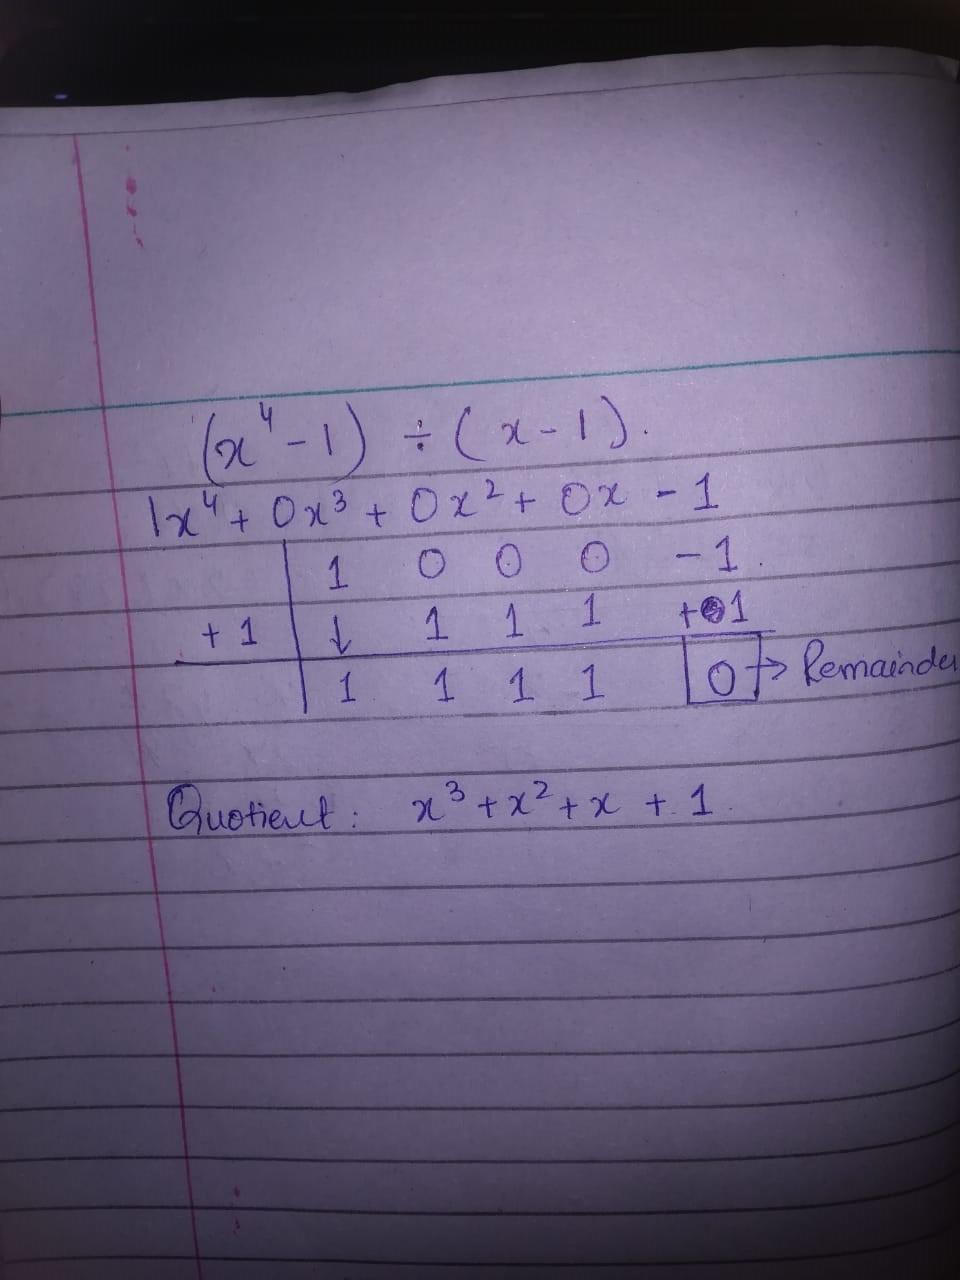 (x⁴ - 1) ÷ (x - 1).
1x⁴ + 0x³ + 0x² + 0x - 1
1 0 0 0 - 1.
+ 1 ↓ 1 1 1 + 1
1 1 1 1 0 → Remainder
Quotient: x³ + x² + x + 1.